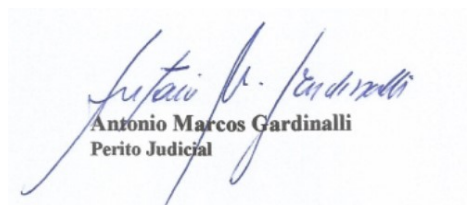 Antonio M. Gardinalli
Antonio Marcos Gardinalli
Perito Judicial